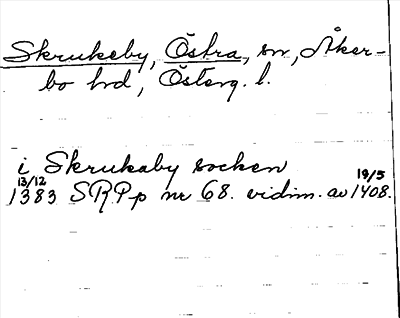 Skrukeby, Östra, sn, Åker-
bo hd, Österg. l.
i Skrukaby socken
13/12 19/5
1383 SRPp nr 68. vidim. av 1408.